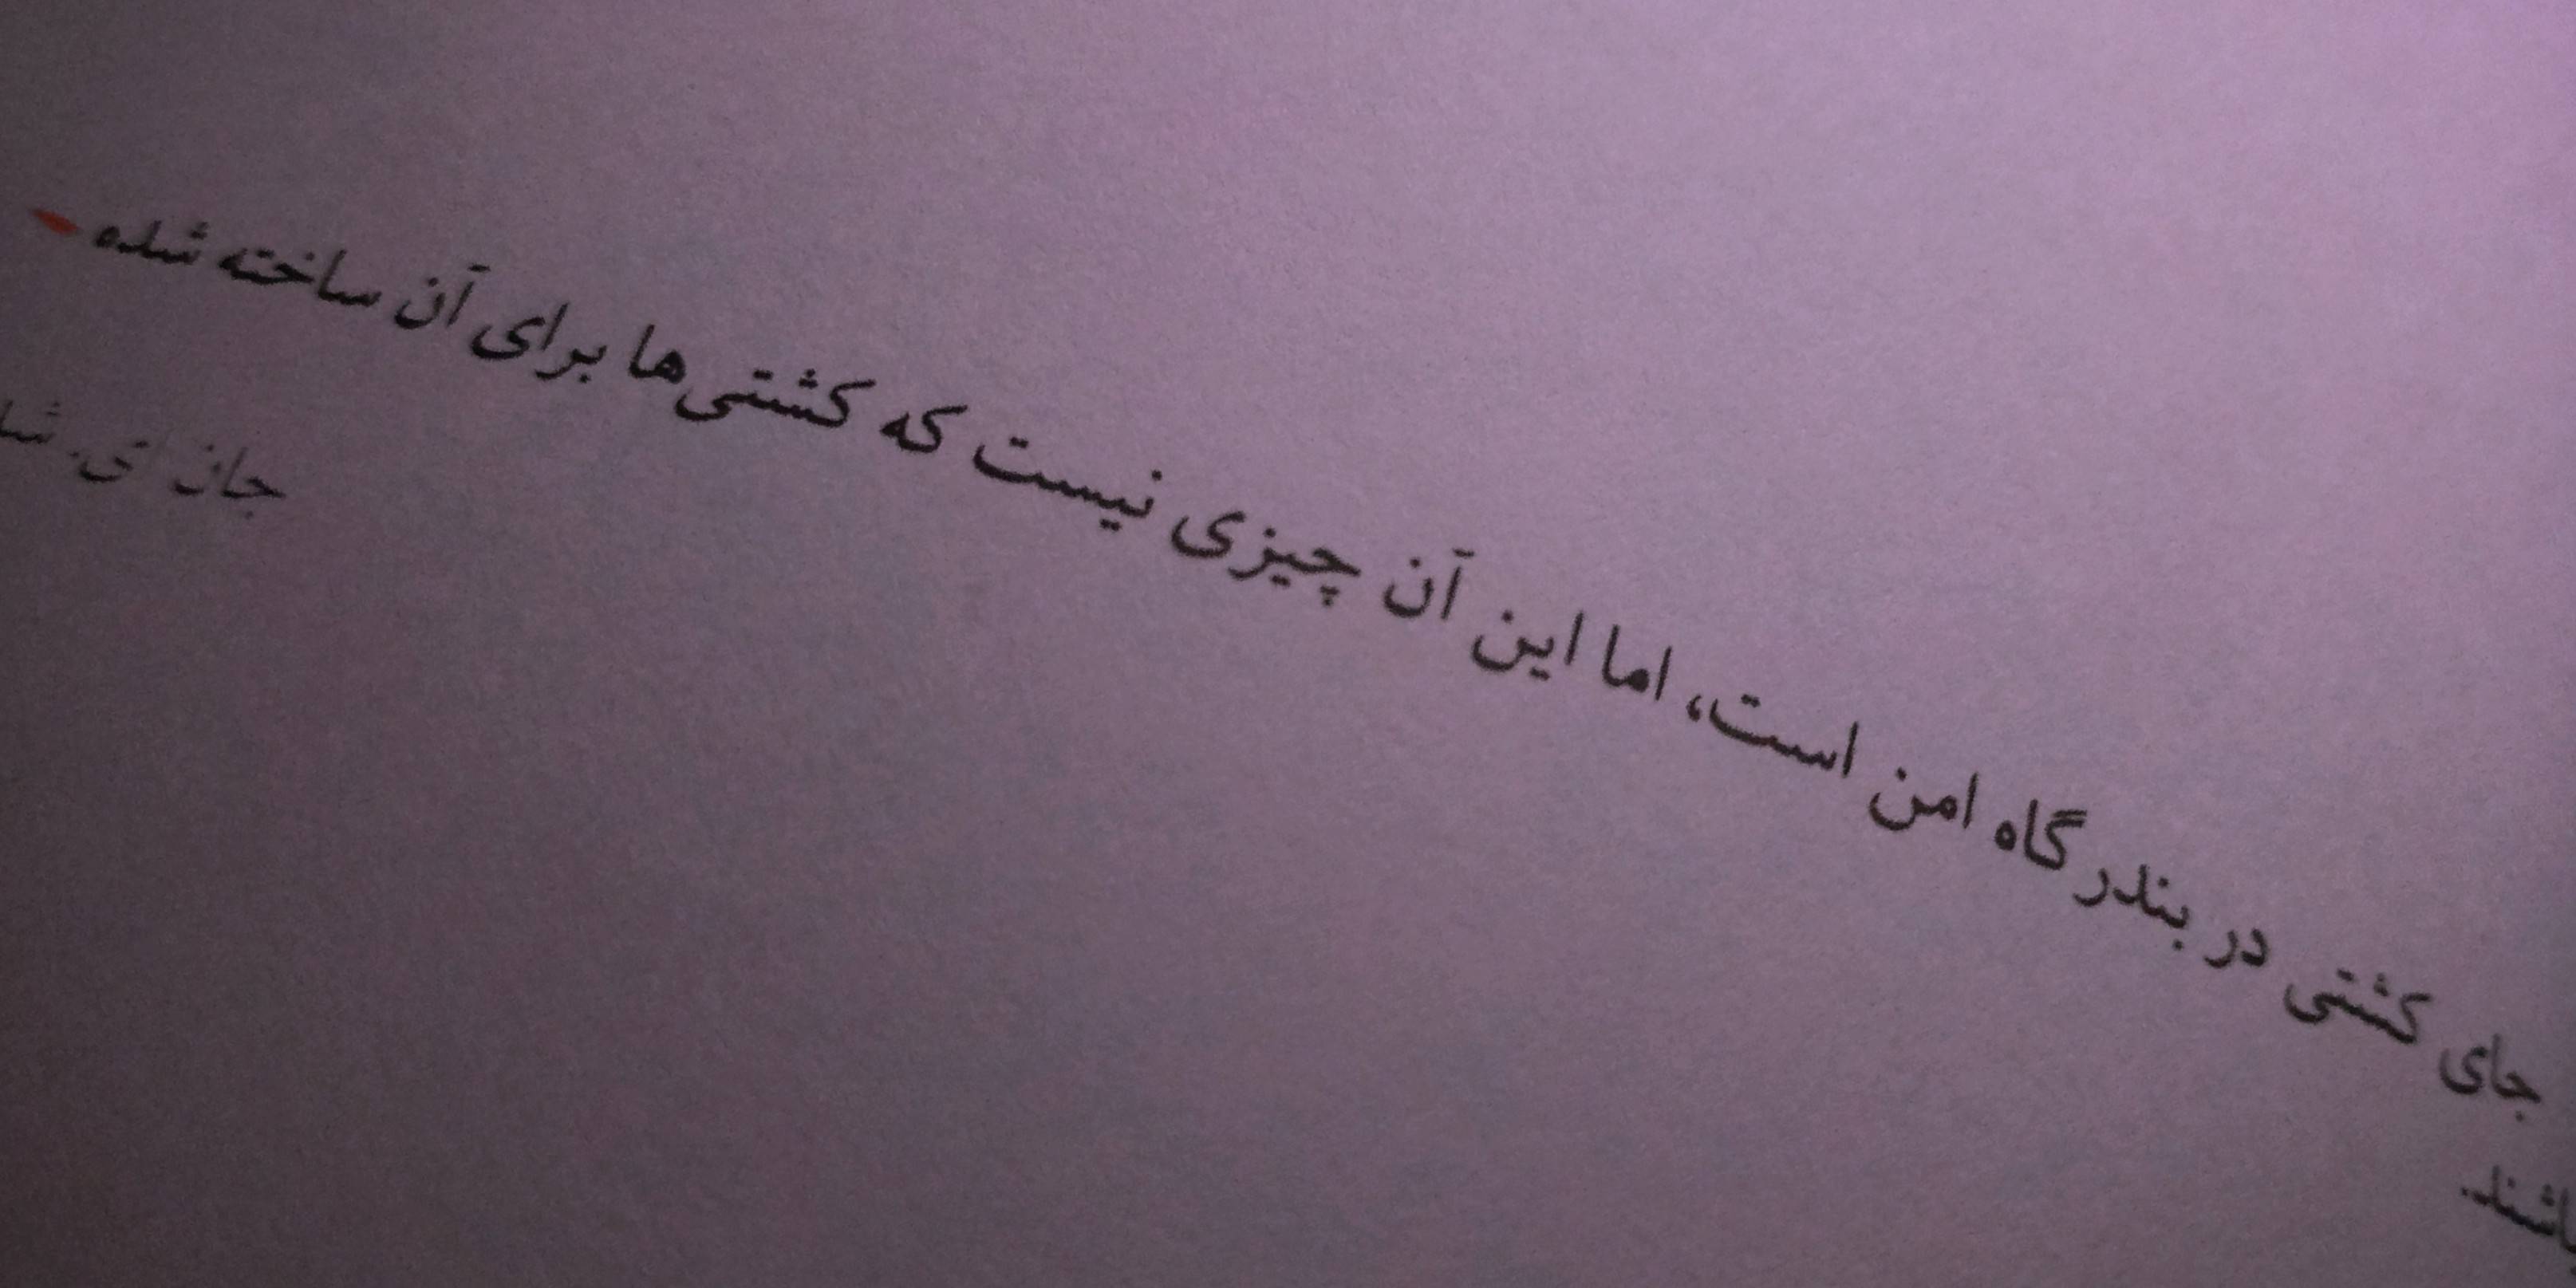 جای کشتی در بندرگاه امن است، اما این آن چیزی نیست که کشتی‌ها برای آن ساخته شده
باشند.
جان ای.